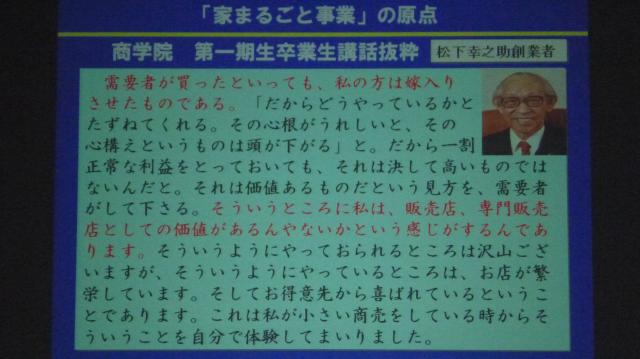 「家まるごと事業」の原点
商学院　第一期生卒業生講話抜粋
松下幸之助創業者
需要者が買ったといっても、私の方は嫁入り
させたものである。「だからどうやっているかと
たずねてくれる。その心根がうれしいと、その
心構えというものは頭が下がる」と。だから一割
正常な利益をとっておいても、それは決して高いものでは
ないんだと。それは価値あるものだという見方を、需要者
がして下さる。そういうところに私は、販売店、専門販売
店としての価値があるんやないかという感じがするんであ
ります。そういうようにやっておられるところは沢山ござ
いますが、そういうようにやっているところは、お店が繁
栄しています。そしてお得意先から喜ばれているというこ
とであります。これは私が小さい商売をしている時からそ
ういうことを自分で体験してまいりました。